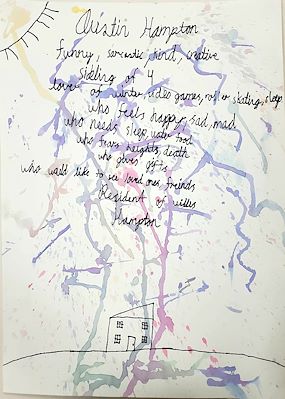 Austin Hampton
funny, sarcastic, kind, creative
sibling of 4
lover of winter, video games, roller skating, sleep
who feels happy, sad, mad
who needs sleep, water food
who fears heights, death
who gives gifts
who would like to see loved ones, friends
Resident of
Hampton